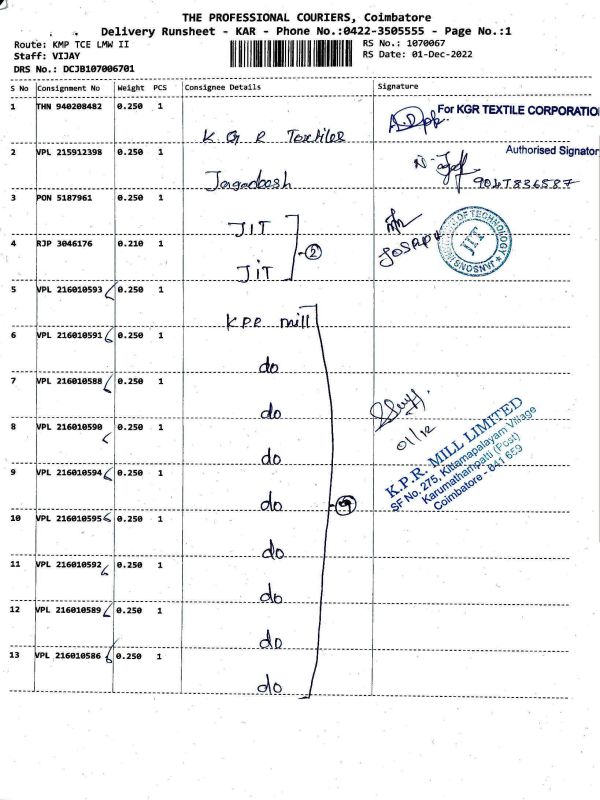 THE PROFESSIONAL COURIERS, Coimbatore
Delivery Runsheet - KAR - Phone No.:0422-3505555 - Page No.:1
Route: KMP TCE LMW II
RS No.: 1070067
Staff: VIJAY
RS Date: 01-Dec-2022
DRS No.: DCJB107006701
S No Consignment No Weight PCS Consignee Details Signature
1 THN 940208482 0.250 1
For KGR TEXTILE CORPORATIO
K G R Textiles
2 VPL 215912398 0.250 1
Authorised Signator
Jagadeesh
9047836587
3 PON 5187961 0.250 1
JIT
JANSONS INSTITUTE OF TECHNOLOGY
JIT
4 RJP 3046176 0.210 1
2
JIT
5 VPL 216010593 0.250 1
KPR mill
6 VPL 216010591 0.250 1
do
7 VPL 216010588 0.250 1
do
01/12
8 VPL 216010590 0.250 1
do
K.P.R. MILL LIMITED
SF No. 275, Kittampalayam Village
Karumathampatti (Post)
Coimbatore - 641 659
9 VPL 216010594 0.250 1
do
9
10 VPL 216010595 0.250 1
do
11 VPL 216010592 0.250 1
do
12 VPL 216010589 0.250 1
do
13 VPL 216010586 0.250 1
do